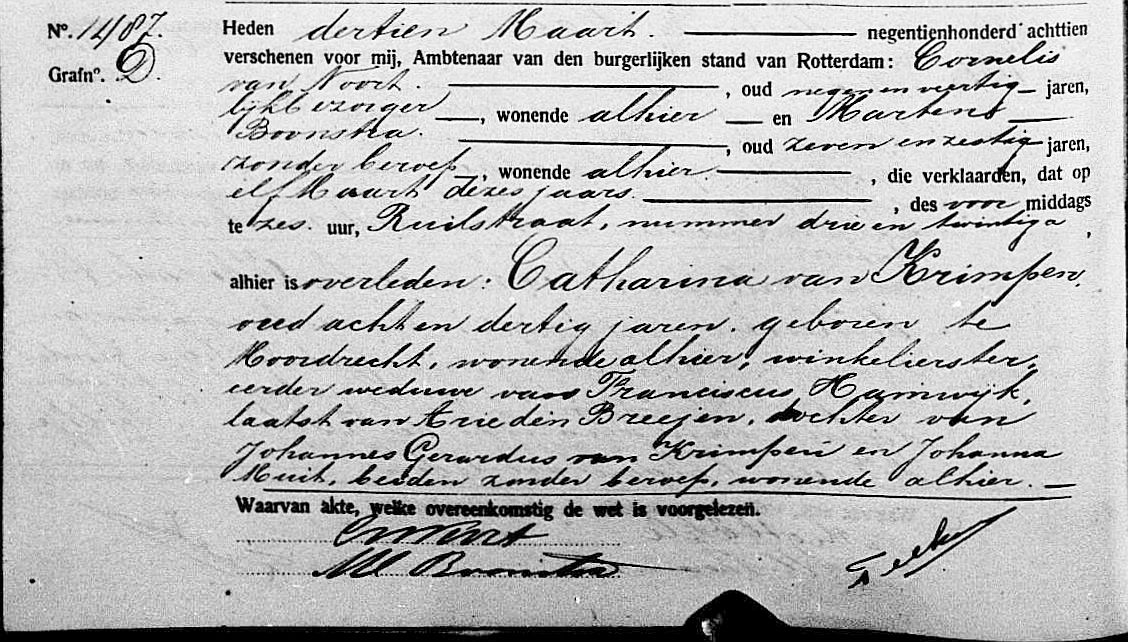 No. 1487.
Grafno. D.
Heden dertien Maart. negentienhonderd achttien
verschenen voor mij, Ambtenaar van den burgerlijken stand van Rotterdam: Cornelis
van Noort. , oud negen en veertig jaren,
lijkbezorger , wonende alhier en Martens
Boonstra. , oud zeven en zestig jaren,
zonder beroep , wonende alhier. , die verklaarden, dat op
elf Maart dezes jaars. , des voor middags
te zes. uur, Ruilstraat, nummer drie en twintig a ,
alhier is overleden: Catharina van Krimpen,
oud acht en dertig jaren. geboren te
Moordrecht, wonende alhier, winkelierster,
eerder weduwe van Franciscus Hamwijk,
laatst van Arie den Breejen, dochter van
Johannes Gerardus van Krimpen en Johanna
Muit, beiden zonder beroep, wonende alhier.
Waarvan akte, welke overeenkomstig de wet is voorgelezen.
CvNoort
M Boonstra